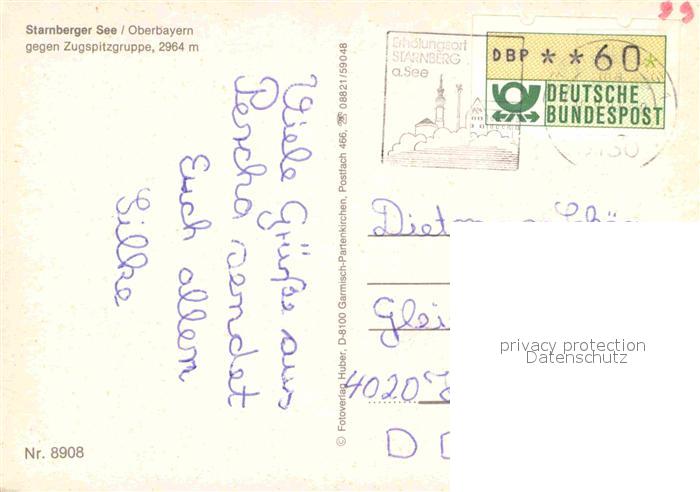 Starnberger See / Oberbayern
gegen Zugspitzgruppe, 2964 m
Viele Grüße aus
Percha sendet
Euch allen
Silke
Nr. 8908
© Fotoverlag Huber, D-8100 Garmisch-Partenkirchen, Postfach 466, ☏ 08821/59048
Erholungsort
STARNBERG
a.See
DBP **60*
DEUTSCHE
BUNDESPOST
99
Glei
4020
D
privacy protection
Datenschutz